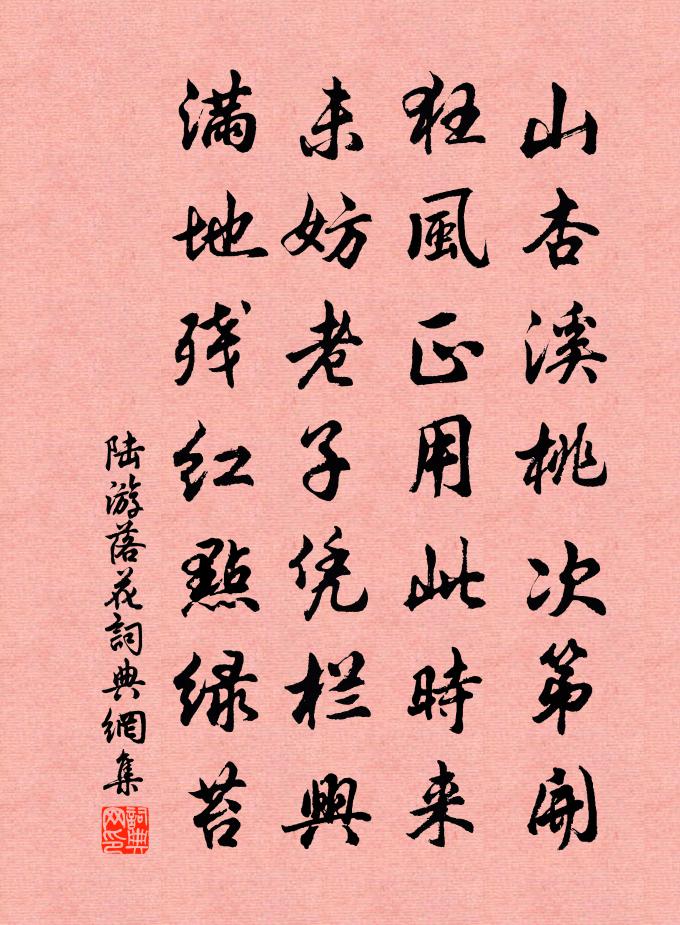 山杏溪桃次第開
狂風正用此時来
未妨老子凭栏興
满地残红點绿苔
陆游落花詞典網集
詞典网印